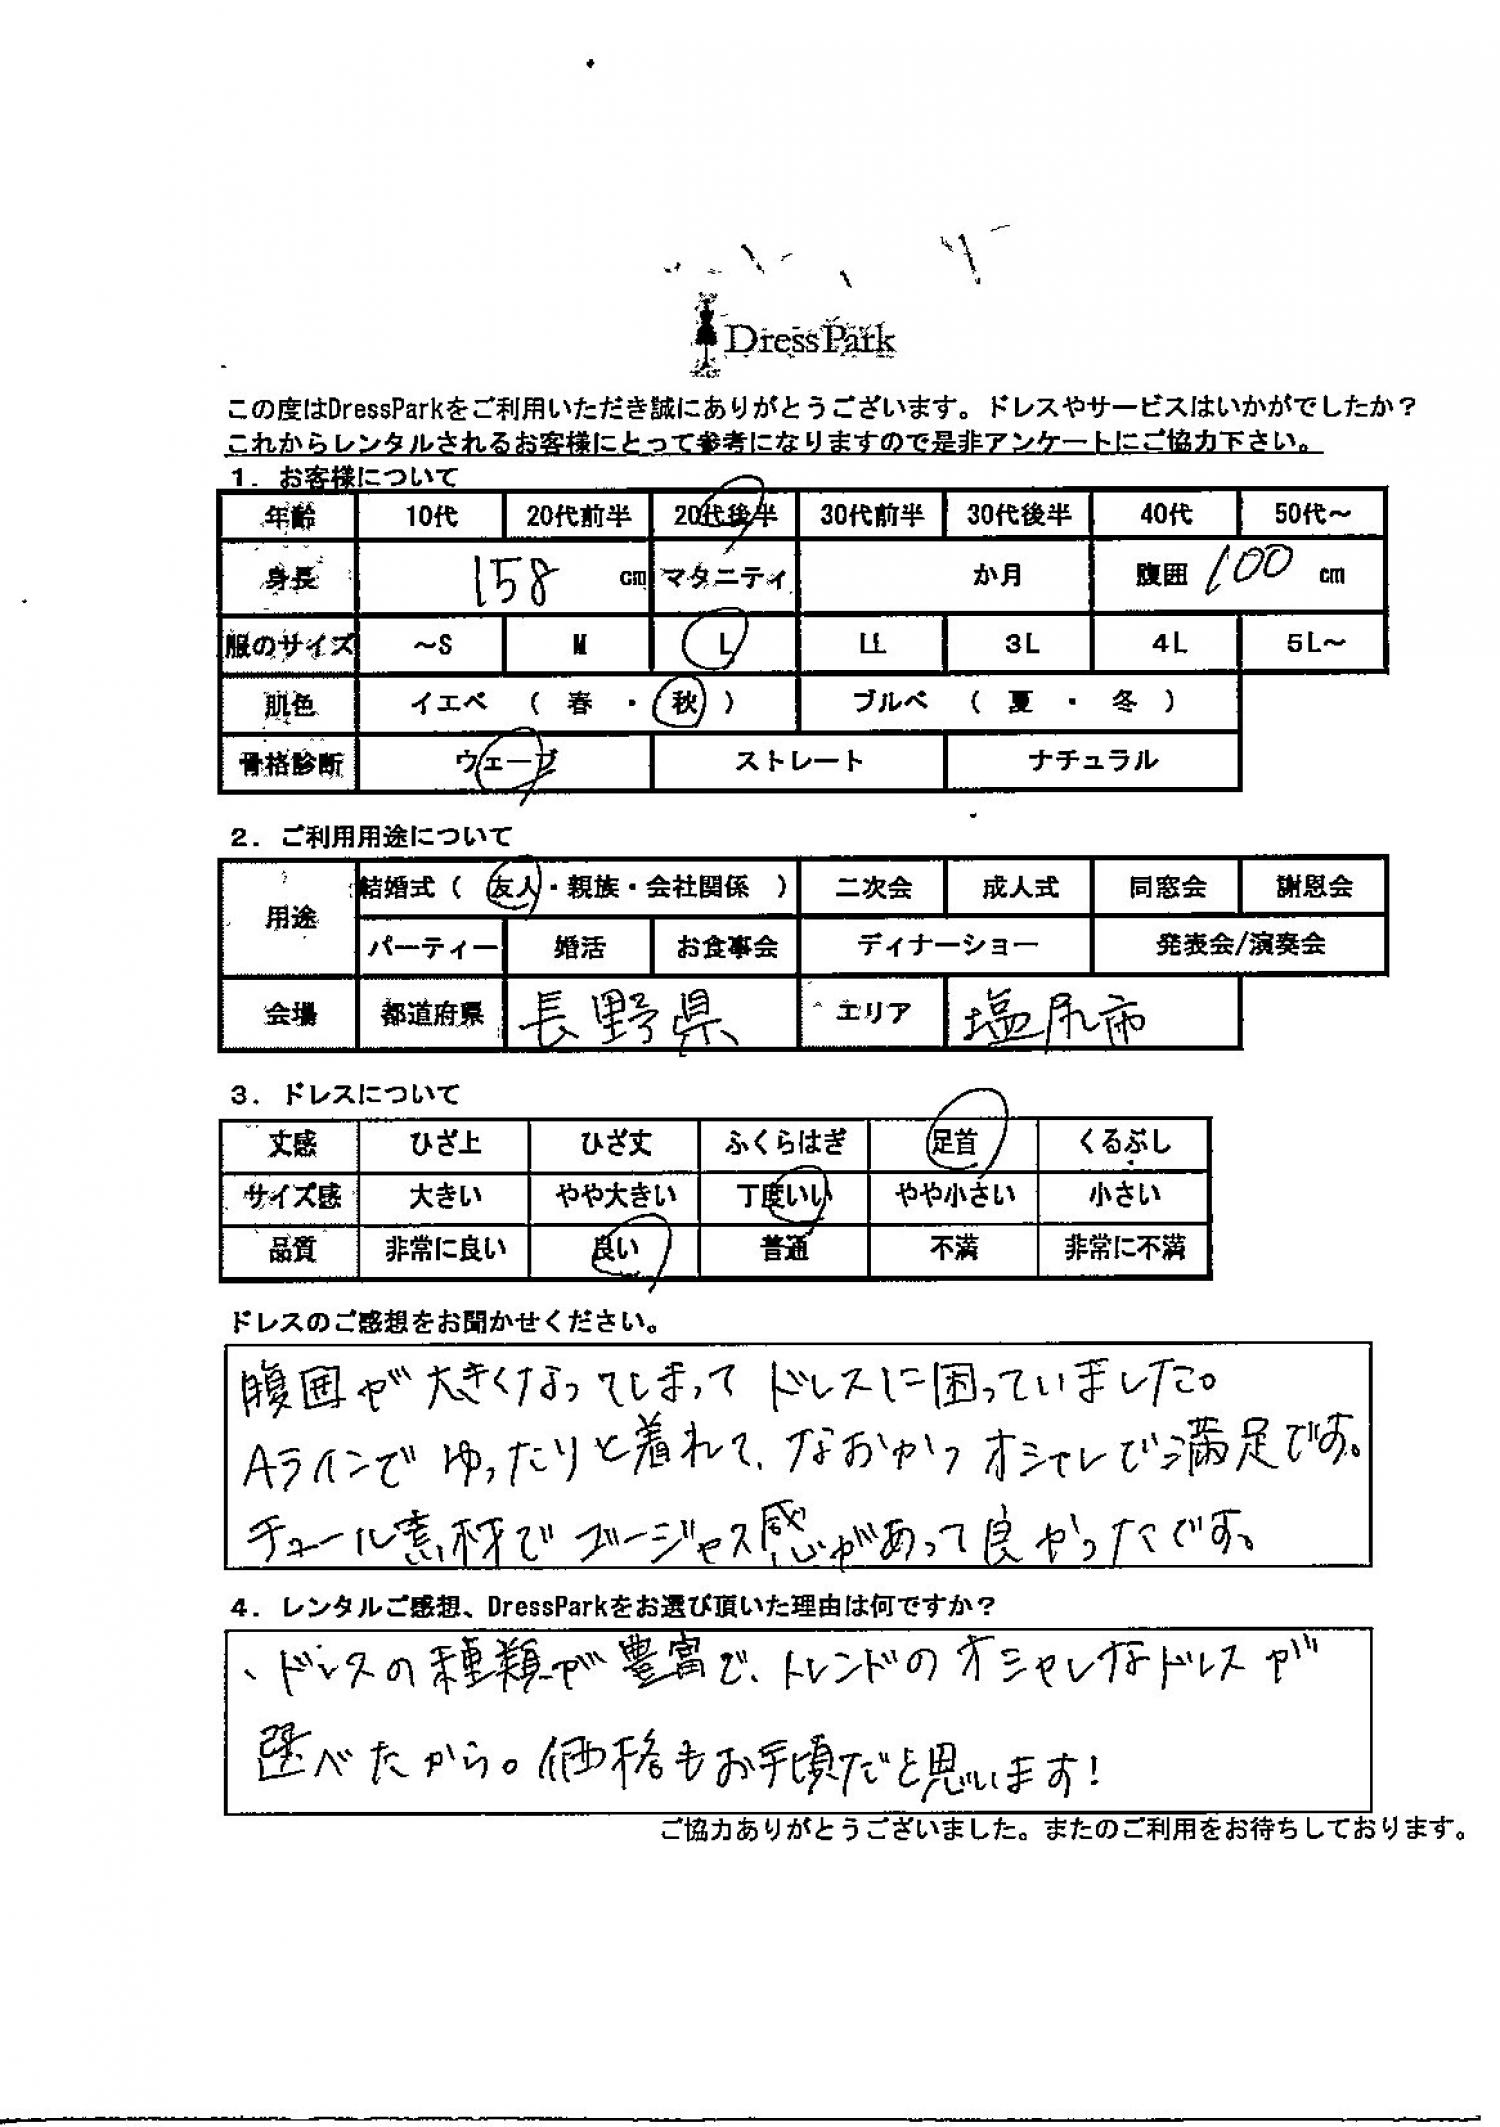 DressPark
この度はDressParkをご利用いただき誠にありがとうございます。ドレスやサービスはいかがでしたか？
これからレンタルされるお客様にとって参考になりますので是非アンケートにご協力下さい。
1. お客様について
年齢 10代 20代前半 20代後半 30代前半 30代後半 40代 50代～
身長 158 cm マタニティ か月 腹囲 100 cm
服のサイズ ～S M L LL 3L 4L 5L～
肌色 イエベ （ 春 ・ 秋 ） ブルベ （ 夏 ・ 冬 ）
骨格診断 ウェーブ ストレート ナチュラル
2. ご利用用途について
用途 結婚式（ 友人・親族・会社関係 ） 二次会 成人式 同窓会 謝恩会
パーティー 婚活 お食事会 ディナーショー 発表会/演奏会
会場 都道府県 長野県 エリア 塩尻市
3. ドレスについて
丈感 ひざ上 ひざ丈 ふくらはぎ 足首 くるぶし
サイズ感 大きい やや大きい 丁度いい やや小さい 小さい
品質 非常に良い 良い 普通 不満 非常に不満
ドレスのご感想をお聞かせください。
腹囲が大きくなってしまってドレスに困っていました。
Aラインでゆったりと着れて、なおかつオシャレで満足です。
チュール素材でゴージャス感があって良かったです。
4. レンタルご感想、DressParkをお選び頂いた理由は何ですか？
、ドレスの種類が豊富で、トレンドのオシャレなドレスが
選べたから。価格もお手頃だと思います！
ご協力ありがとうございました。またのご利用をお待ちしております。